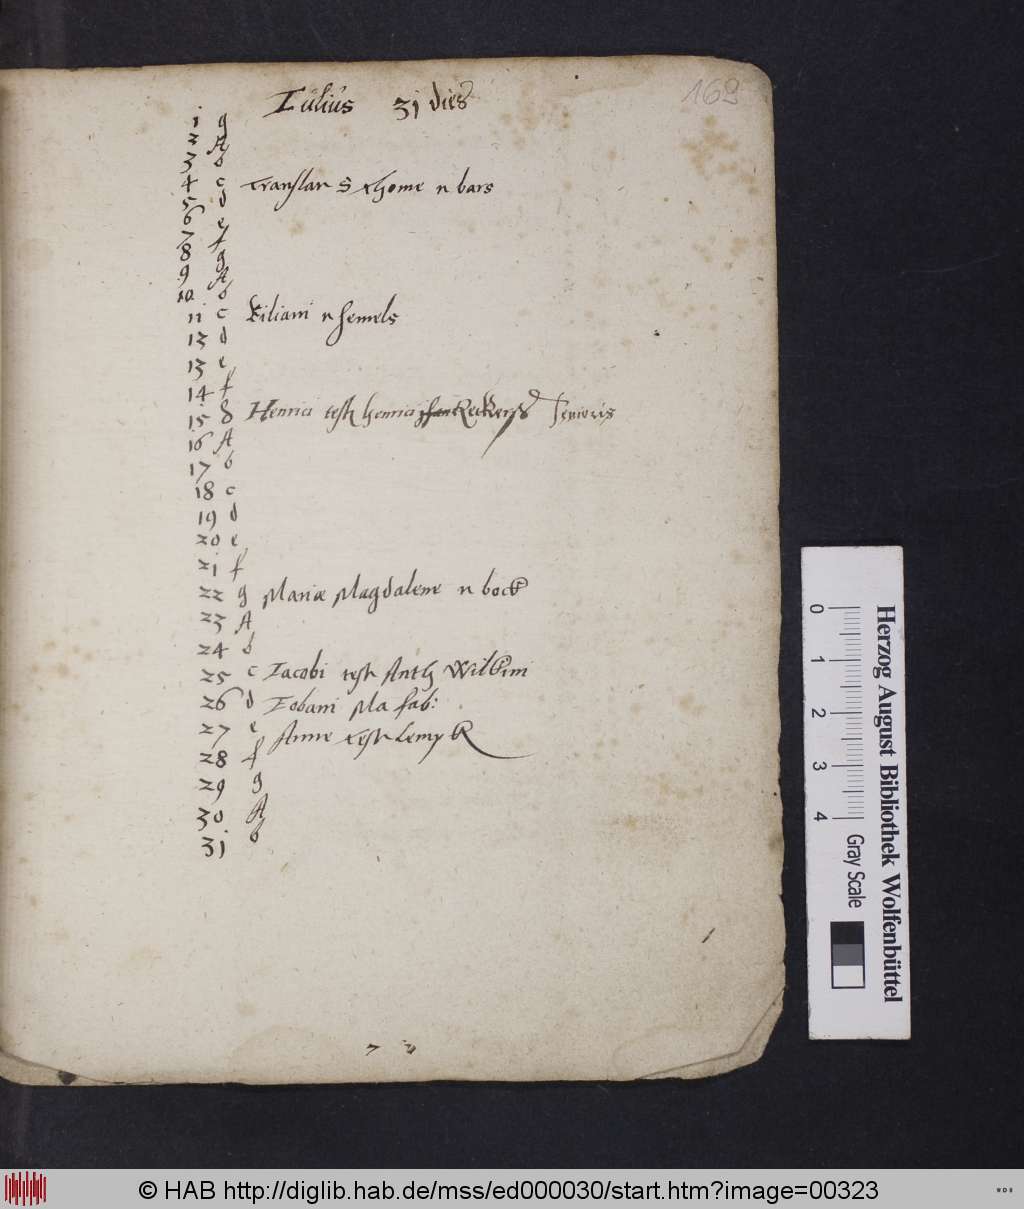 Iulius 31 dies
169
1 g
2 A
3 b
4 c Translat S Thome n bars
5 d
6 e
7 f
8 g
9 A
10 b
11 c Kiliani n hemels
12 d
13 e
14 f
15 g Henrici test henrici Senioris
16 A
17 b
18 c
19 d
20 e
21 f
22 g Mariæ Magdalene n bock
23 A
24 b
25 c Iacobi test Anth Wilkini
26 d Tobani Ma fab:
27 e Anne test Lemp
28 f
29 g
30 A
31 b
0 1 2 3 4
Gray Scale
Herzog August Bibliothek Wolfenbüttel
© HAB http://diglib.hab.de/mss/ed000030/start.htm?image=00323